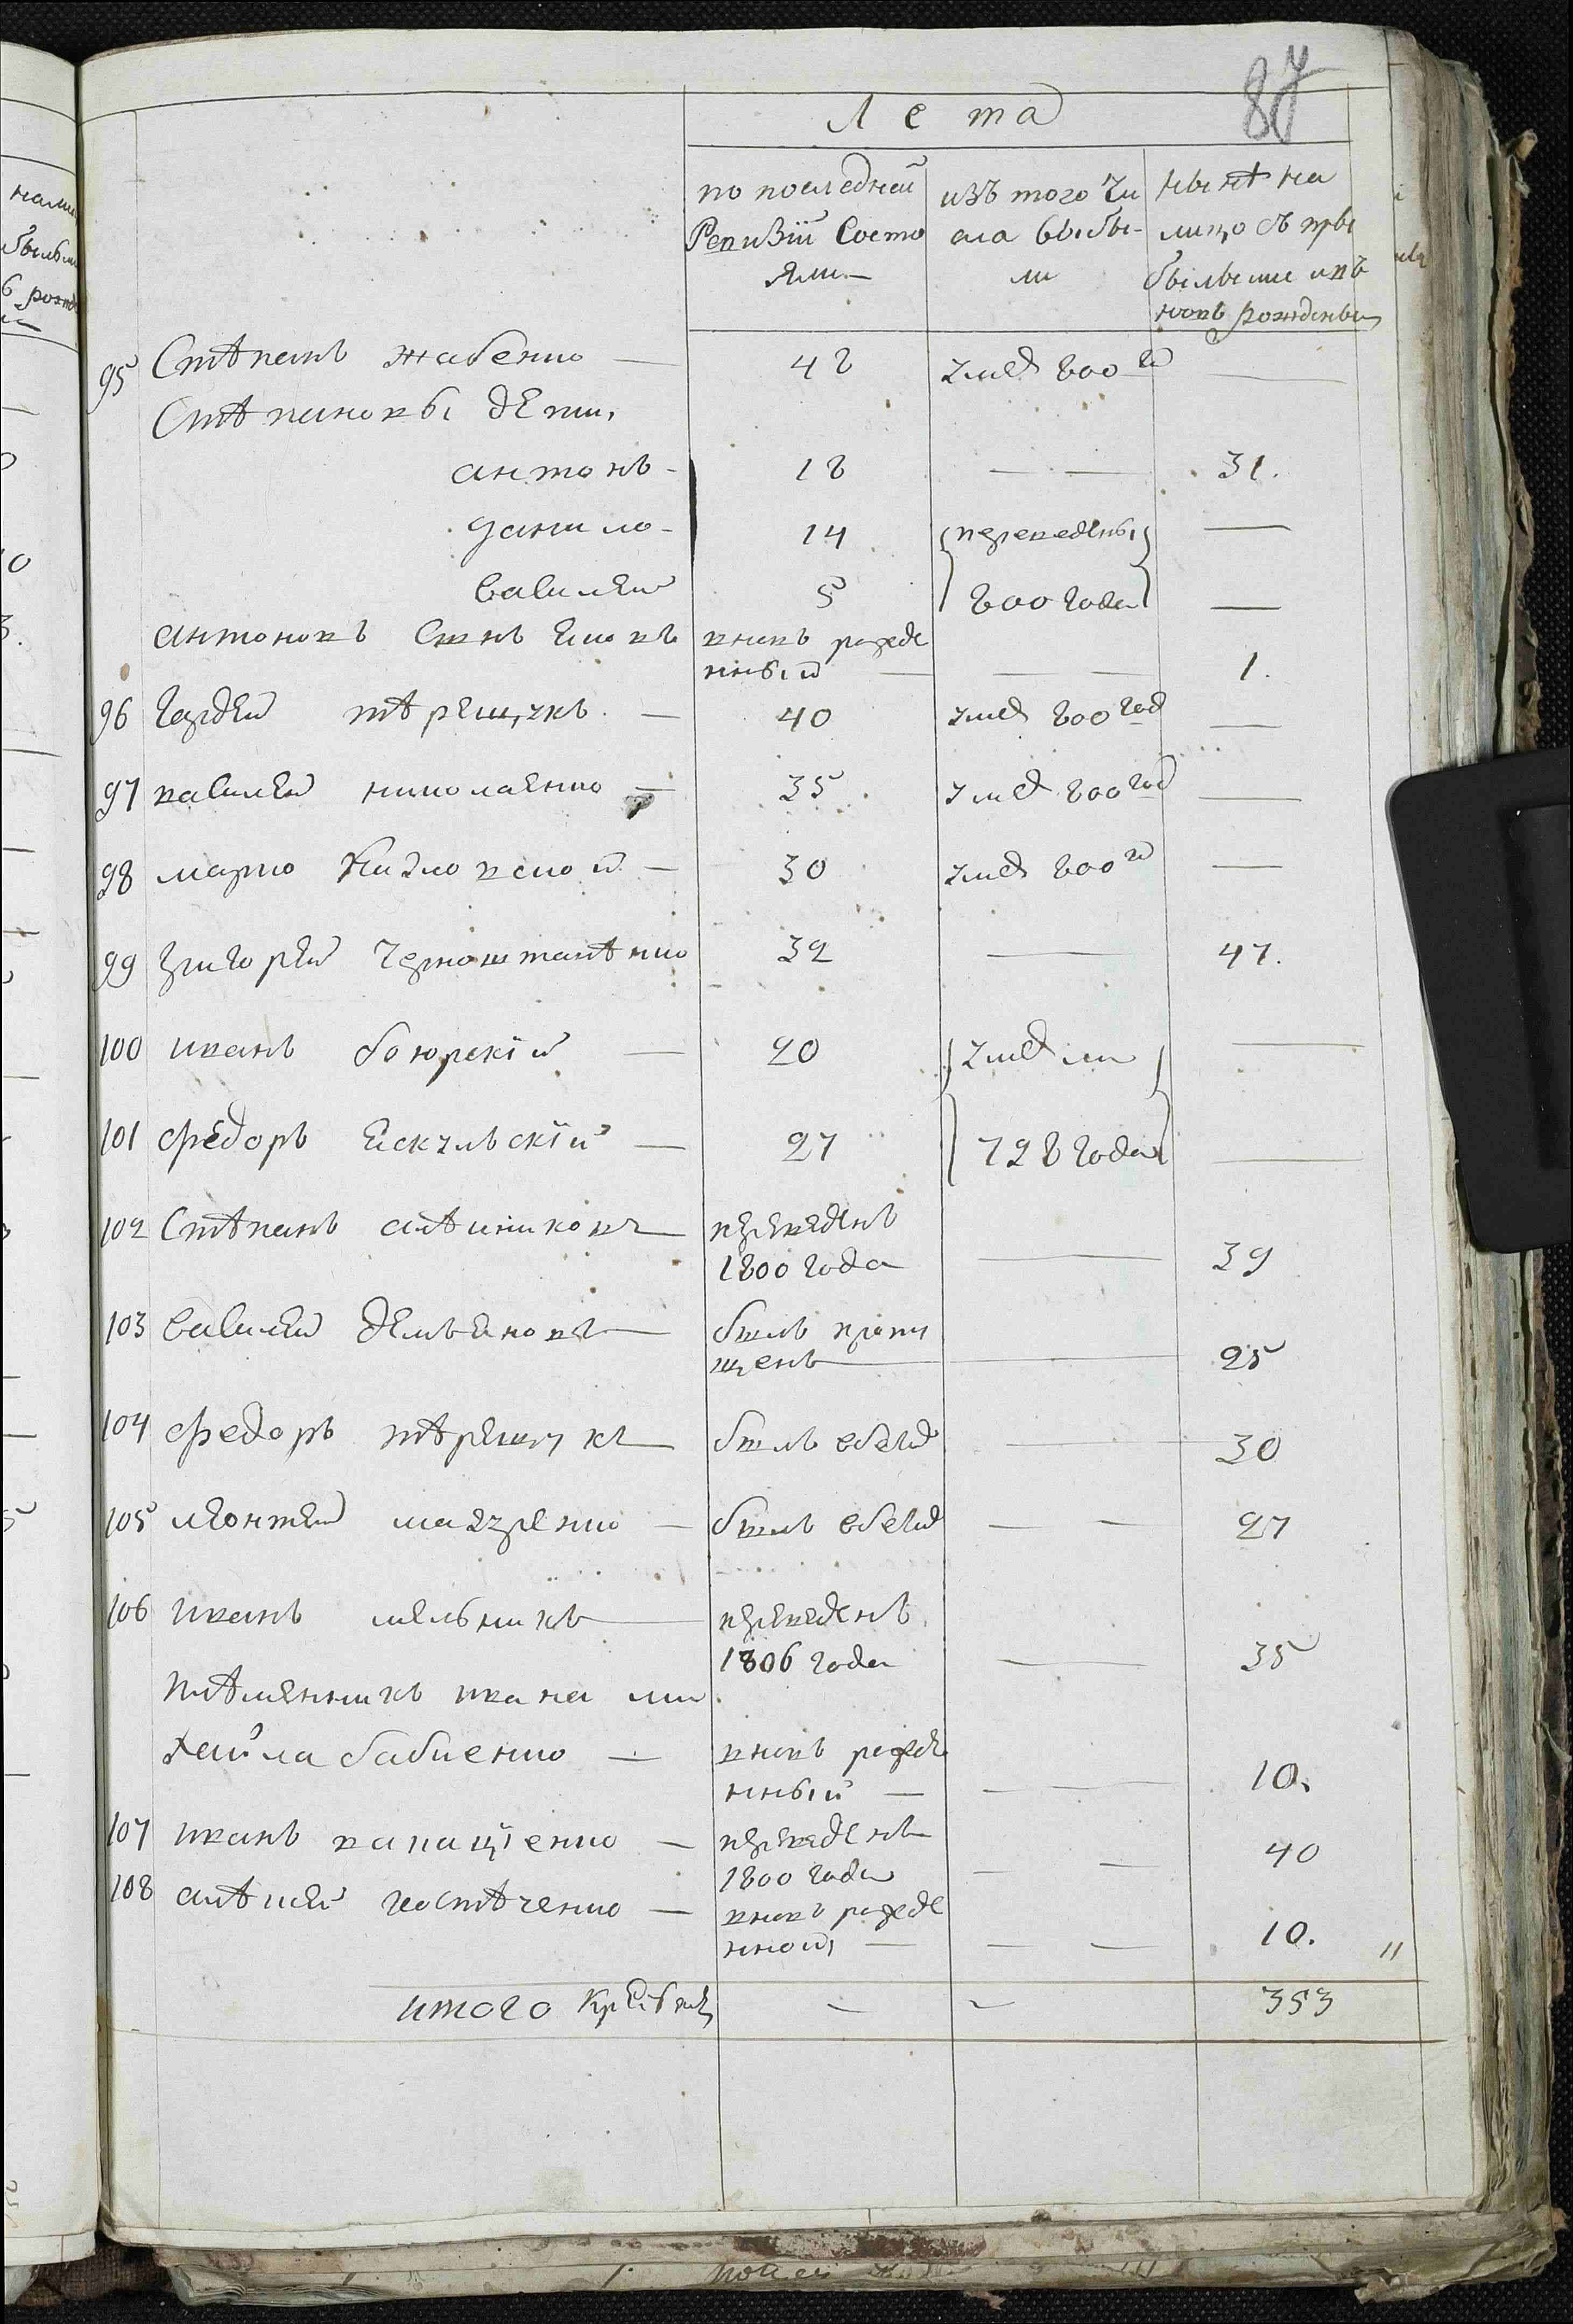 87
Лета
по последней Ревизїи Состояли
изъ того числа выбыли
нынѣ на лицо съ прибылыми и вновь рожденны
95 Стѣпанъ жабенко — 48 умер 800 го —
Стѣпановы дети,
антонъ — 18 — 31.
данило — 14 переведены —
василей 5 800 года —
антоновъ Сынъ Яковъ вновь рожденный — — 1.
96 Гордей тѣрещукъ — 40 умер 800 год —
97 василей николаенко — 35 умер 800 год —
98 марко — 30 умер 800 го —
99 григорей черноштанѣнко 32 — 47.
100 иванъ боюрскїй — 20 умерли —
101 федоръ — 27 798 года —
102 Стѣпанъ алѣйниковъ переведенъ 1800 года — 39
103 василей демьяновъ былъ пропущенъ — 25
104 федоръ тѣрещукъ былъ в бегах — 30
105 леонтей мазуренко — былъ в бегах — 27
106 иванъ мельникъ переведенъ 1806 года — 35
племянникъ ивана михайла бабиенко — вновь рожденный — — 10.
107 иванъ капащіенко — переведенъ 1800 года — 40
108 алѣксей костѣченко — вновь рожденной — — 10. "
итого — — 353